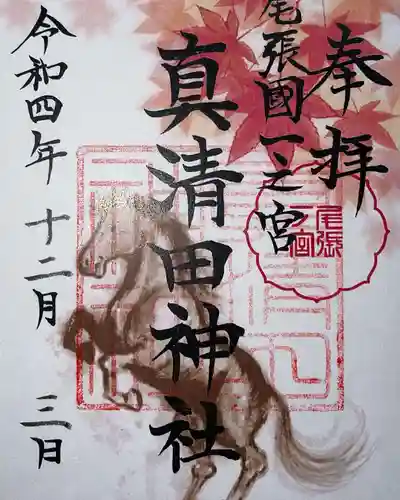 奉拝
尾張國一之宮
真清田神社
令和四年十二月三日
尾張
一宮